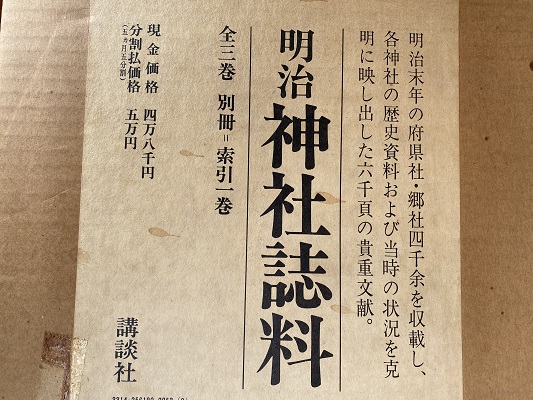 明治末年の府県社・郷社四千余を収載し、
各神社の歴史資料および当時の状況を克
明に映し出した六千頁の貴重文献。
明治神社誌料
全三巻 別冊=索引一巻
現金価格 四万八千円
分割払価格 五万円
(五ヵ月五分割)
講談社